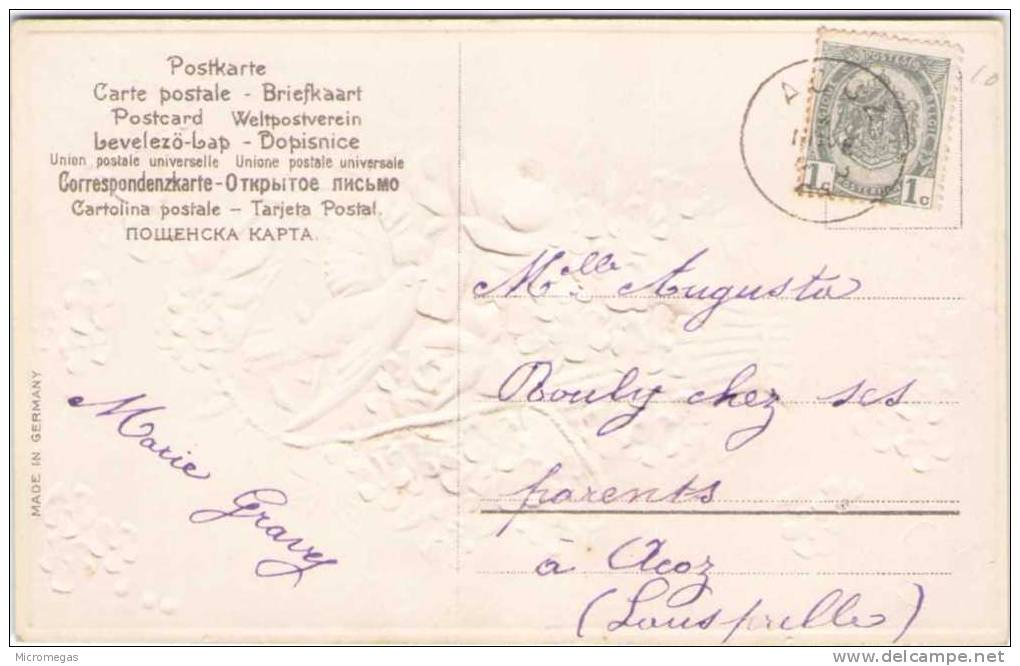 Postkarte
Carte postale - Briefkaart
Postcard Weltpostverein
Levelező-Lap - Dopisnice
Union postale universelle Unione postale universale
Correspondenzkarte-Открытое письмо
Cartolina postale - Tarjeta Postal.
ПОЩЕНСКА КАРТА.
POSTES
BELGIQUE
1 c
1 c
10
Mlle Augusta
Rouly chez ses
parents
à Acoz
(Lausprelle)
Marie
Gravy
MADE IN GERMANY
Micromegas
www.delcampe.net